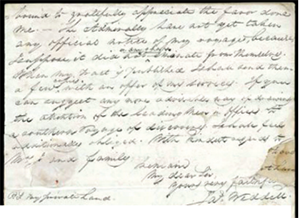 bound to gratefully appreciate the favor done
me — The Admiralty have not yet taken
any official notice of my voyage, because
I suppose it did not emanate from themselves
When my is published I shall send them
a few with an offer of my services. If you
can suggest any more advisable way of drawing
the attention of the Leading Men in office to
a southern Voyage of discovery I shall feel
obliged. With kind regards to
Mrs and family
I remain
My dear Sir
Yours very faithfully
Jas. Weddell
my private hand.